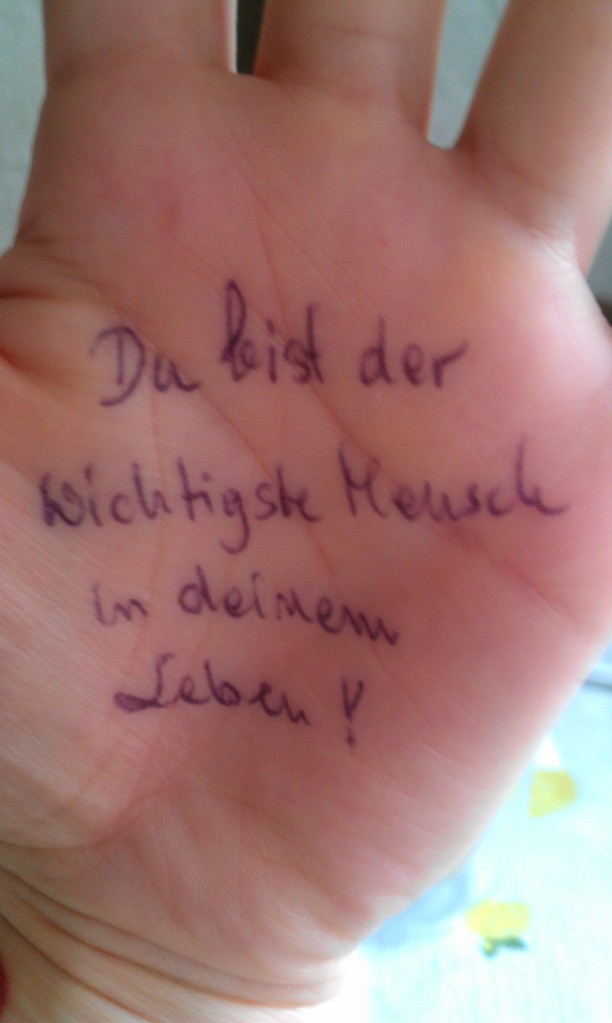 Du bist der
wichtigste Mensch
in deinem
Leben!